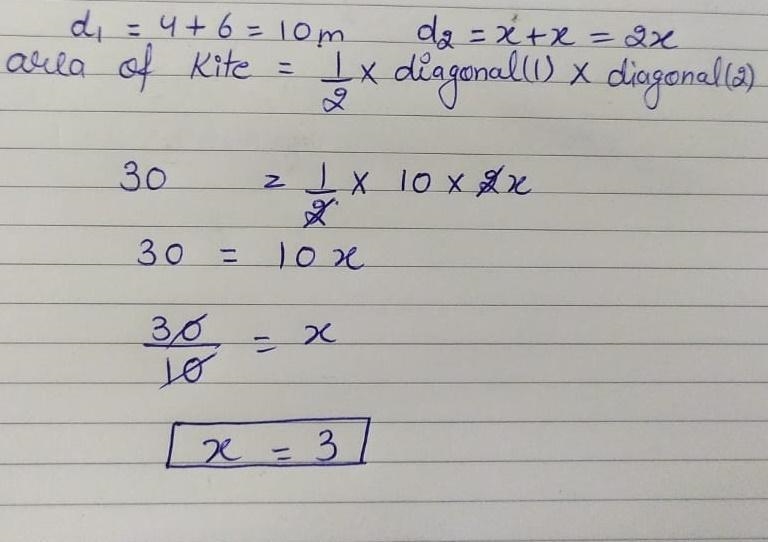 d₁ = 4 + 6 = 10m d₂ = x + x = 2x
area of Kite = 1/2 x diagonal(1) x diagonal(2)
30 = 1/2 x 10 x 2x
30 = 10x
30/10 = x
x = 3